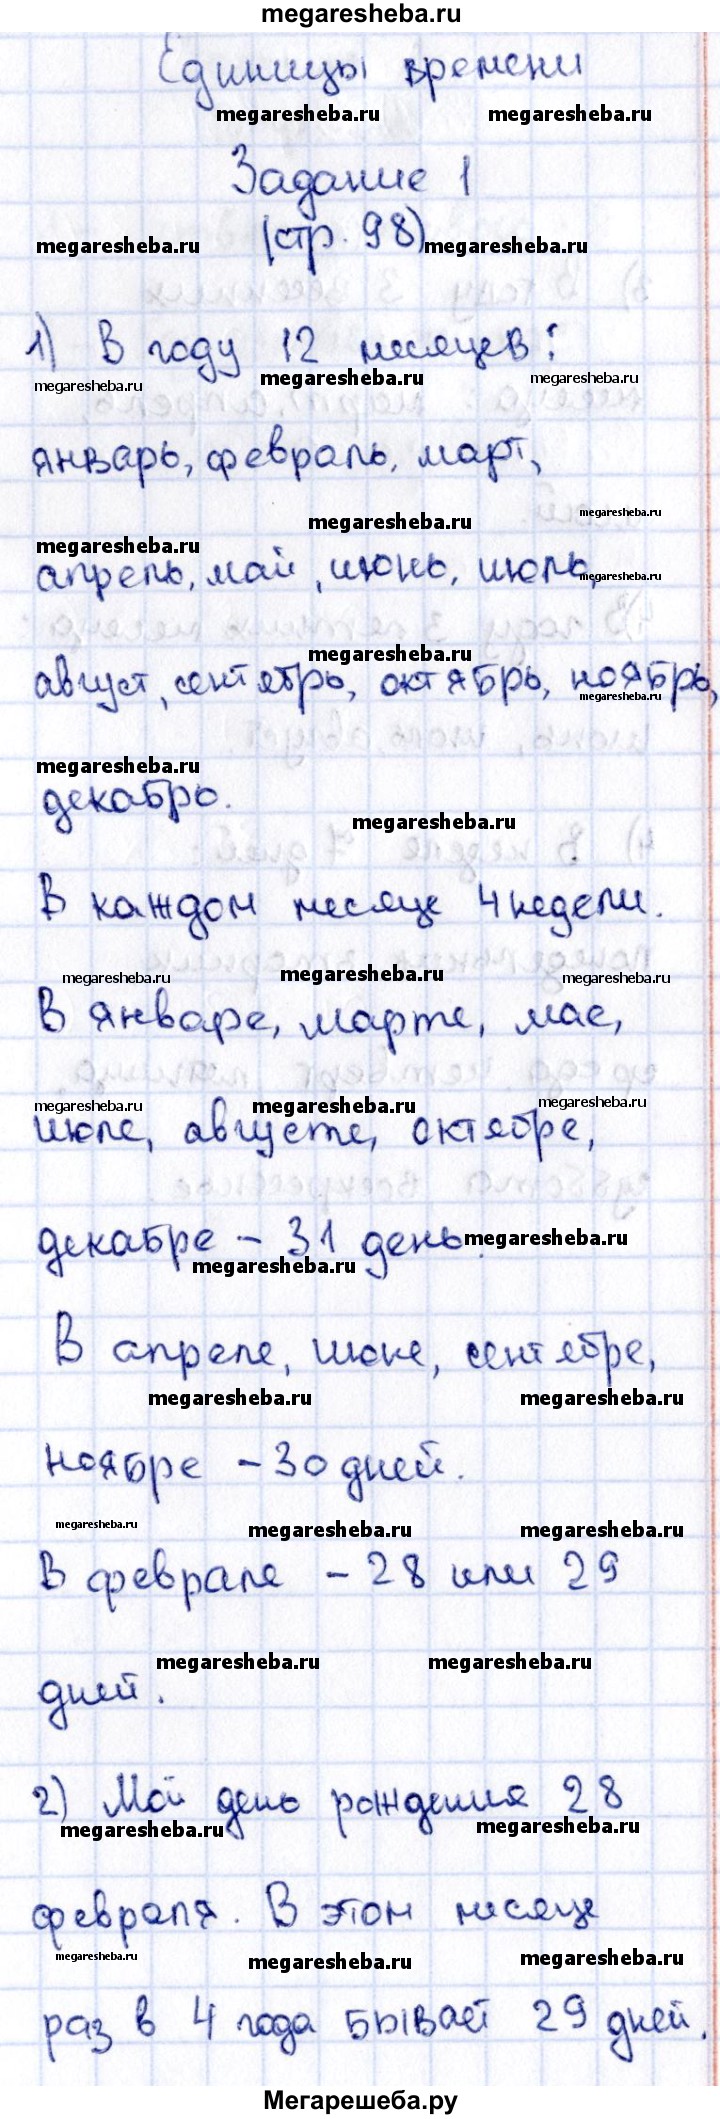 megaresheba.ru
Единицы времени
megaresheba.ru megaresheba.ru
Задание 1
(стр. 98)
megaresheba.ru megaresheba.ru
1) В году 12 месяцев:
megaresheba.ru megaresheba.ru megaresheba.ru
январь, февраль, март,
megaresheba.ru megaresheba.ru
megaresheba.ru
апрель, май, июнь, июль,
megaresheba.ru
megaresheba.ru
август, сентябрь, октябрь, ноябрь,
megaresheba.ru
megaresheba.ru
декабрь.
megaresheba.ru
В каждом месяце 4 недели.
megaresheba.ru megaresheba.ru megaresheba.ru
В январе, марте, мае,
megaresheba.ru megaresheba.ru megaresheba.ru
июле, августе, октябре,
декабре - 31 день.
megaresheba.ru megaresheba.ru
В апреле, июне, сентябре,
megaresheba.ru megaresheba.ru
ноябре - 30 дней.
megaresheba.ru megaresheba.ru megaresheba.ru
В феврале - 28 или 29
megaresheba.ru megaresheba.ru
дней.
2) Мой день рождения 28
megaresheba.ru megaresheba.ru
февраля. В этом месяце
megaresheba.ru megaresheba.ru megaresheba.ru
раз в 4 года бывает 29 дней.
Мегарешеба.ру